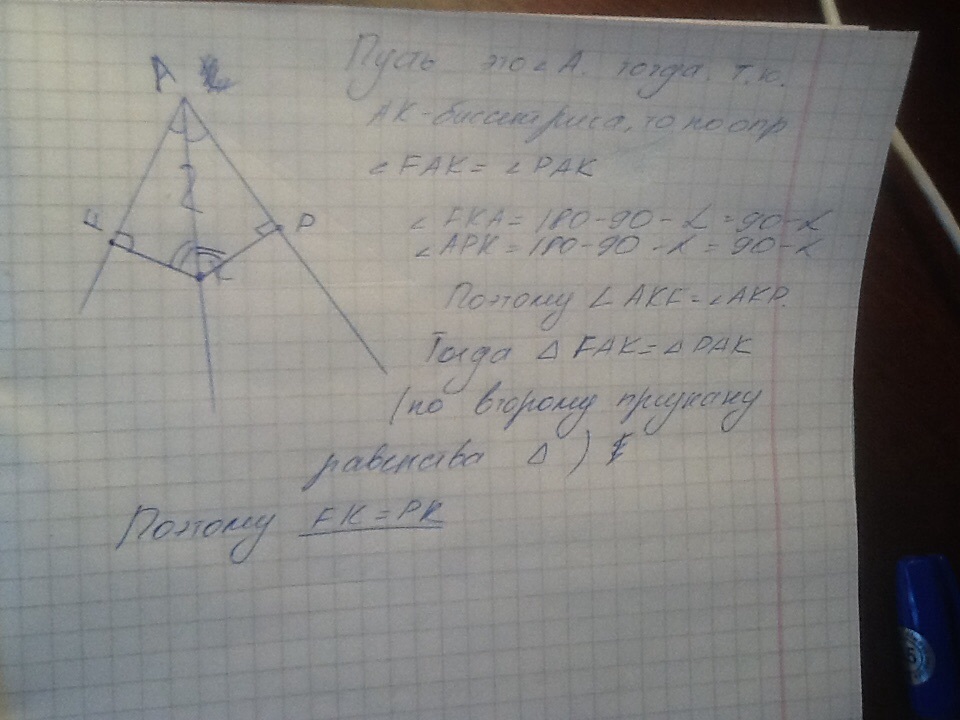 A
F
P
K
Пусть это ∠A. тогда. т.к.
AK-биссектриса, то по опр
∠FAK = ∠PAK
∠FKA = 180-90-α = 90-α
∠APK = 180-90-α = 90-α
Поэтому ∠AKF = ∠AKP.
Тогда △ FAK = △ PAK
(по второму признаку
равенства △)
Поэтому FK = PK